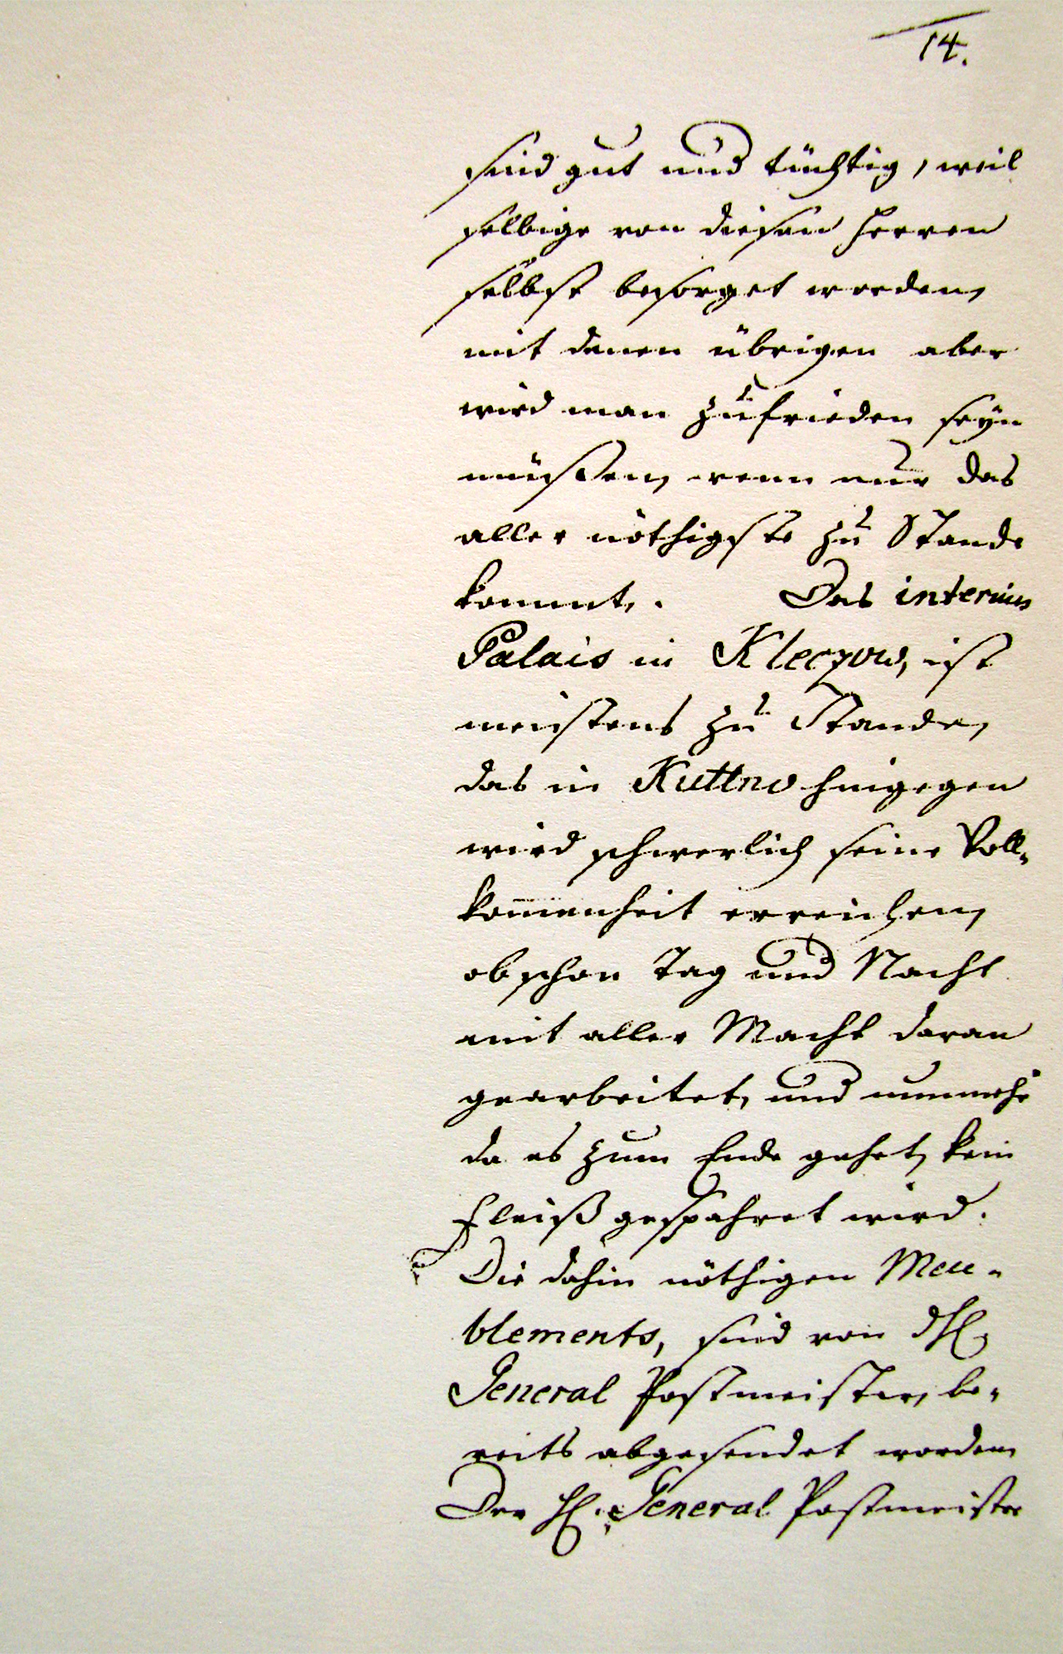 14.
sind gut und tüchtig, weil
selbige von diesen Herren
selbst besorget werden,
mit denen übrigen aber
wird man zufrieden seyn
müßen, wenn nur das
aller nöthigste zu Stande
kommt. Das interims
Palais in Kleczow, ist
meistens zu Stande,
das in Kuttno hingegen
wird schwerlich seine Voll-
kommenheit erreichen,
obschon Tag und Nacht
mit aller Macht daran
gearbeitet, und nunmehr
da es zum Ende gehet, kein
Fleiß gespahret wird.
Die dahin nöthigen Meu-
blements, sind von dH.
General Postmeister, be-
reits abgesendet worden.
Der H. General Postmeister